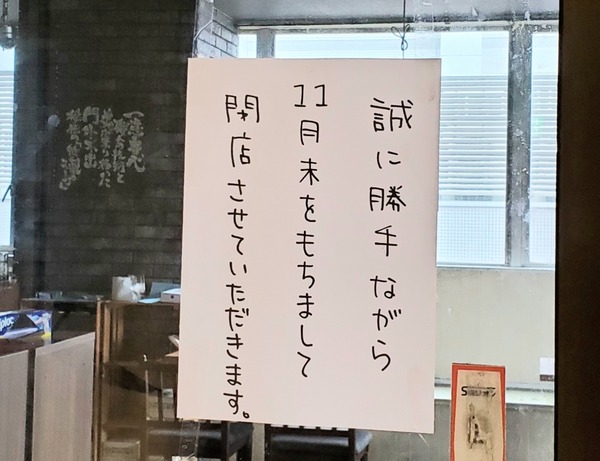 誠に勝手ながら
11月末をもちまして
閉店させていただきます。